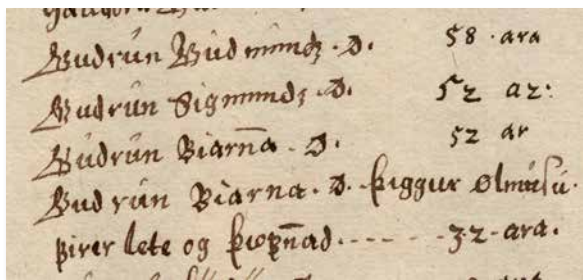 Gudrún Gudmundz. D. 58. ara
Gudrún Sigmundz. D. 52 ar.
Gudrún Biarna. D. 52 ar
Gudrún Biarna. D. þiggur ølmusu.
þirer lete og
32 ara.